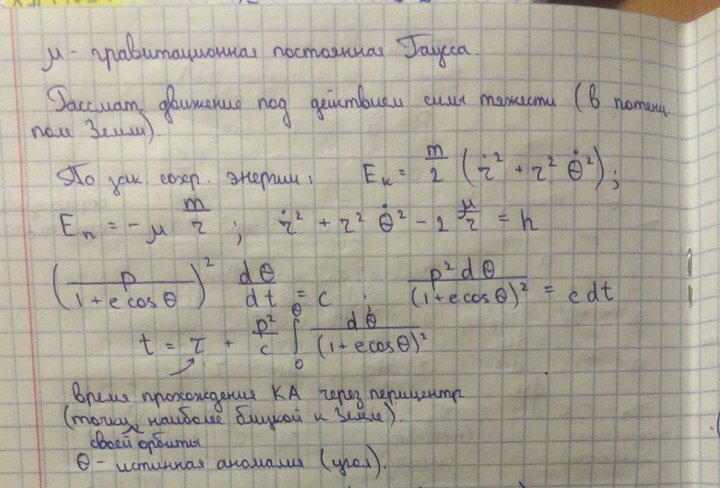 μ - гравитационная постоянная Гаусса.
Рассмат. движение под действием силы тяжести (в потенц.
поле Земли).
По зак. сохр. энергии: Eк = m/2 (ṙ² + r² θ̇²);
Eп = -μ m/r ; ṙ² + r² θ̇² - 2 μ/r = h
(p/(1+e cos θ))² dθ/dt = c ; p² dθ/(1+e cos θ)² = c dt
t = τ + p²/c ∫₀^θ dθ/(1+e cos θ)²
время прохождения КА через перицентр
(точку наиболее близкой к Земле).
своей орбиты
θ - истинная аномалия (угол).